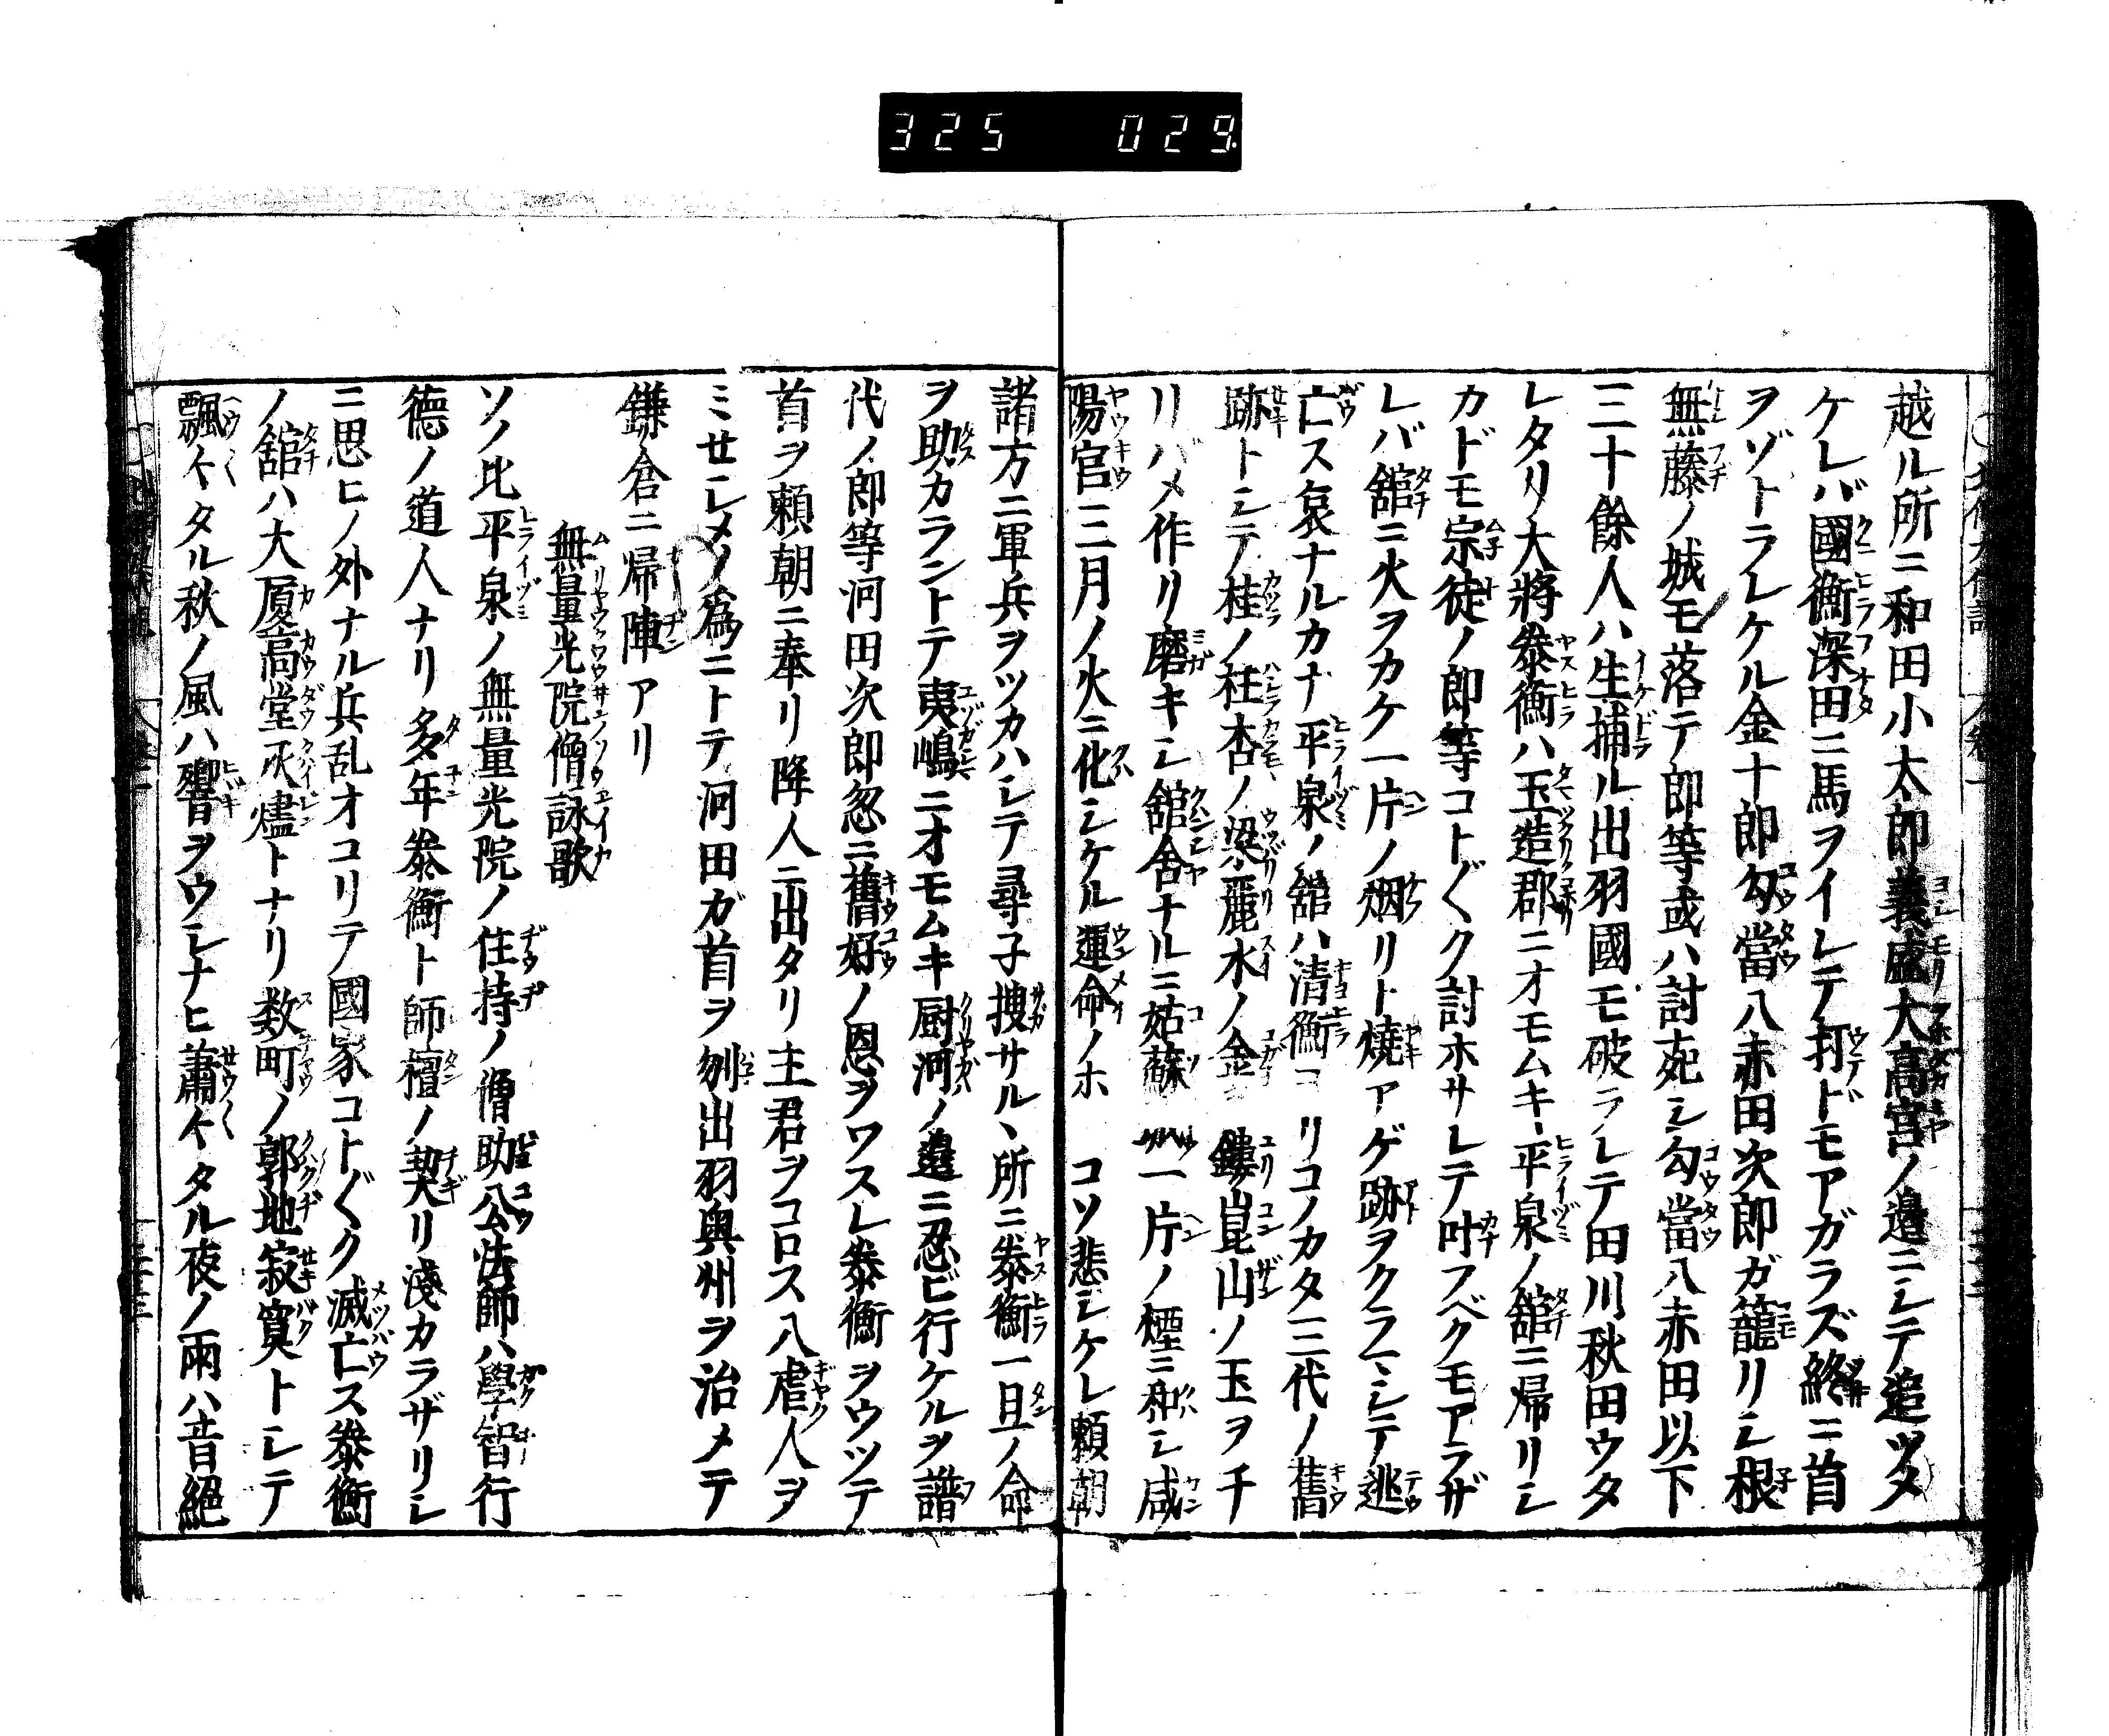 325 029
越ル所ニ和田小太郎義盛大高宮ノ邉ニシテ追ツメ
ケレバ國衡深田ニ馬ヲイレテ打ドモアガラズ終ニ首
ヲゾトラレケル金十郎勾當八赤田次郎ガ籠リシ根
無藤ノ城モ落テ郎等或ハ討死シ勾當八赤田以下
三十餘人ハ生捕ル出羽國モ破ラレテ田川秋田ウタ
レタリ大將泰衡ハ玉造郡ニオモムキ平泉ノ舘ニ帰リシ
カドモ宗徒ノ郎等コト〴〵ク討ホサレテ叶フベクモアラザ
レバ舘ニ火ヲカケ一片ノ烟リト燒アゲ跡ヲクラマシテ逃
亡ス哀ナルカナ平泉ノ舘ハ清衡コリコノカタ三代ノ舊
跡トシテ桂ノ柱杏ノ梁麗水ノ金鏤崑山ノ玉ヲチ
リバメ作リ磨キシ舘舎ナルニ姑蘇一片ノ煙ニ和シ咸
陽宮三月ノ火ニ化シケル運命ノホコソ悲シケレ頼朝
諸方ニ軍兵ヲツカハシテ尋子捜サルヽ所ニ泰衡一旦ノ命
ヲ助カラントテ夷嶋ニオモムキ厨河ノ邉ニ忍ビ行ケルヲ譜
代ノ郎等河田次郎忽ニ舊好ノ恩ヲワスレ泰衡ヲウツテ
首ヲ頼朝ニ奉リ降人ニ出タリ主君ヲコロス八虐人ヲ
ミセシメノ爲ニトテ河田ガ首ヲ刎出羽奥州ヲ治メテ
鎌倉ニ帰陣アリ
無量光院僧詠歌
ソノ比平泉ノ無量光院ノ住持ノ僧助公法師ハ學智行
德ノ道人ナリ多年泰衡ト師檀ノ契リ淺カラザリシ
ニ思ヒノ外ナル兵乱オコリテ國家コト〴〵ク滅亡ス泰衡
ノ舘ハ大厦高堂灰燼トナリ数町ノ郭地寂寞トシテ
飄々タル秋ノ風ハ響ヲウシナヒ蕭々タル夜ノ雨ハ音絕